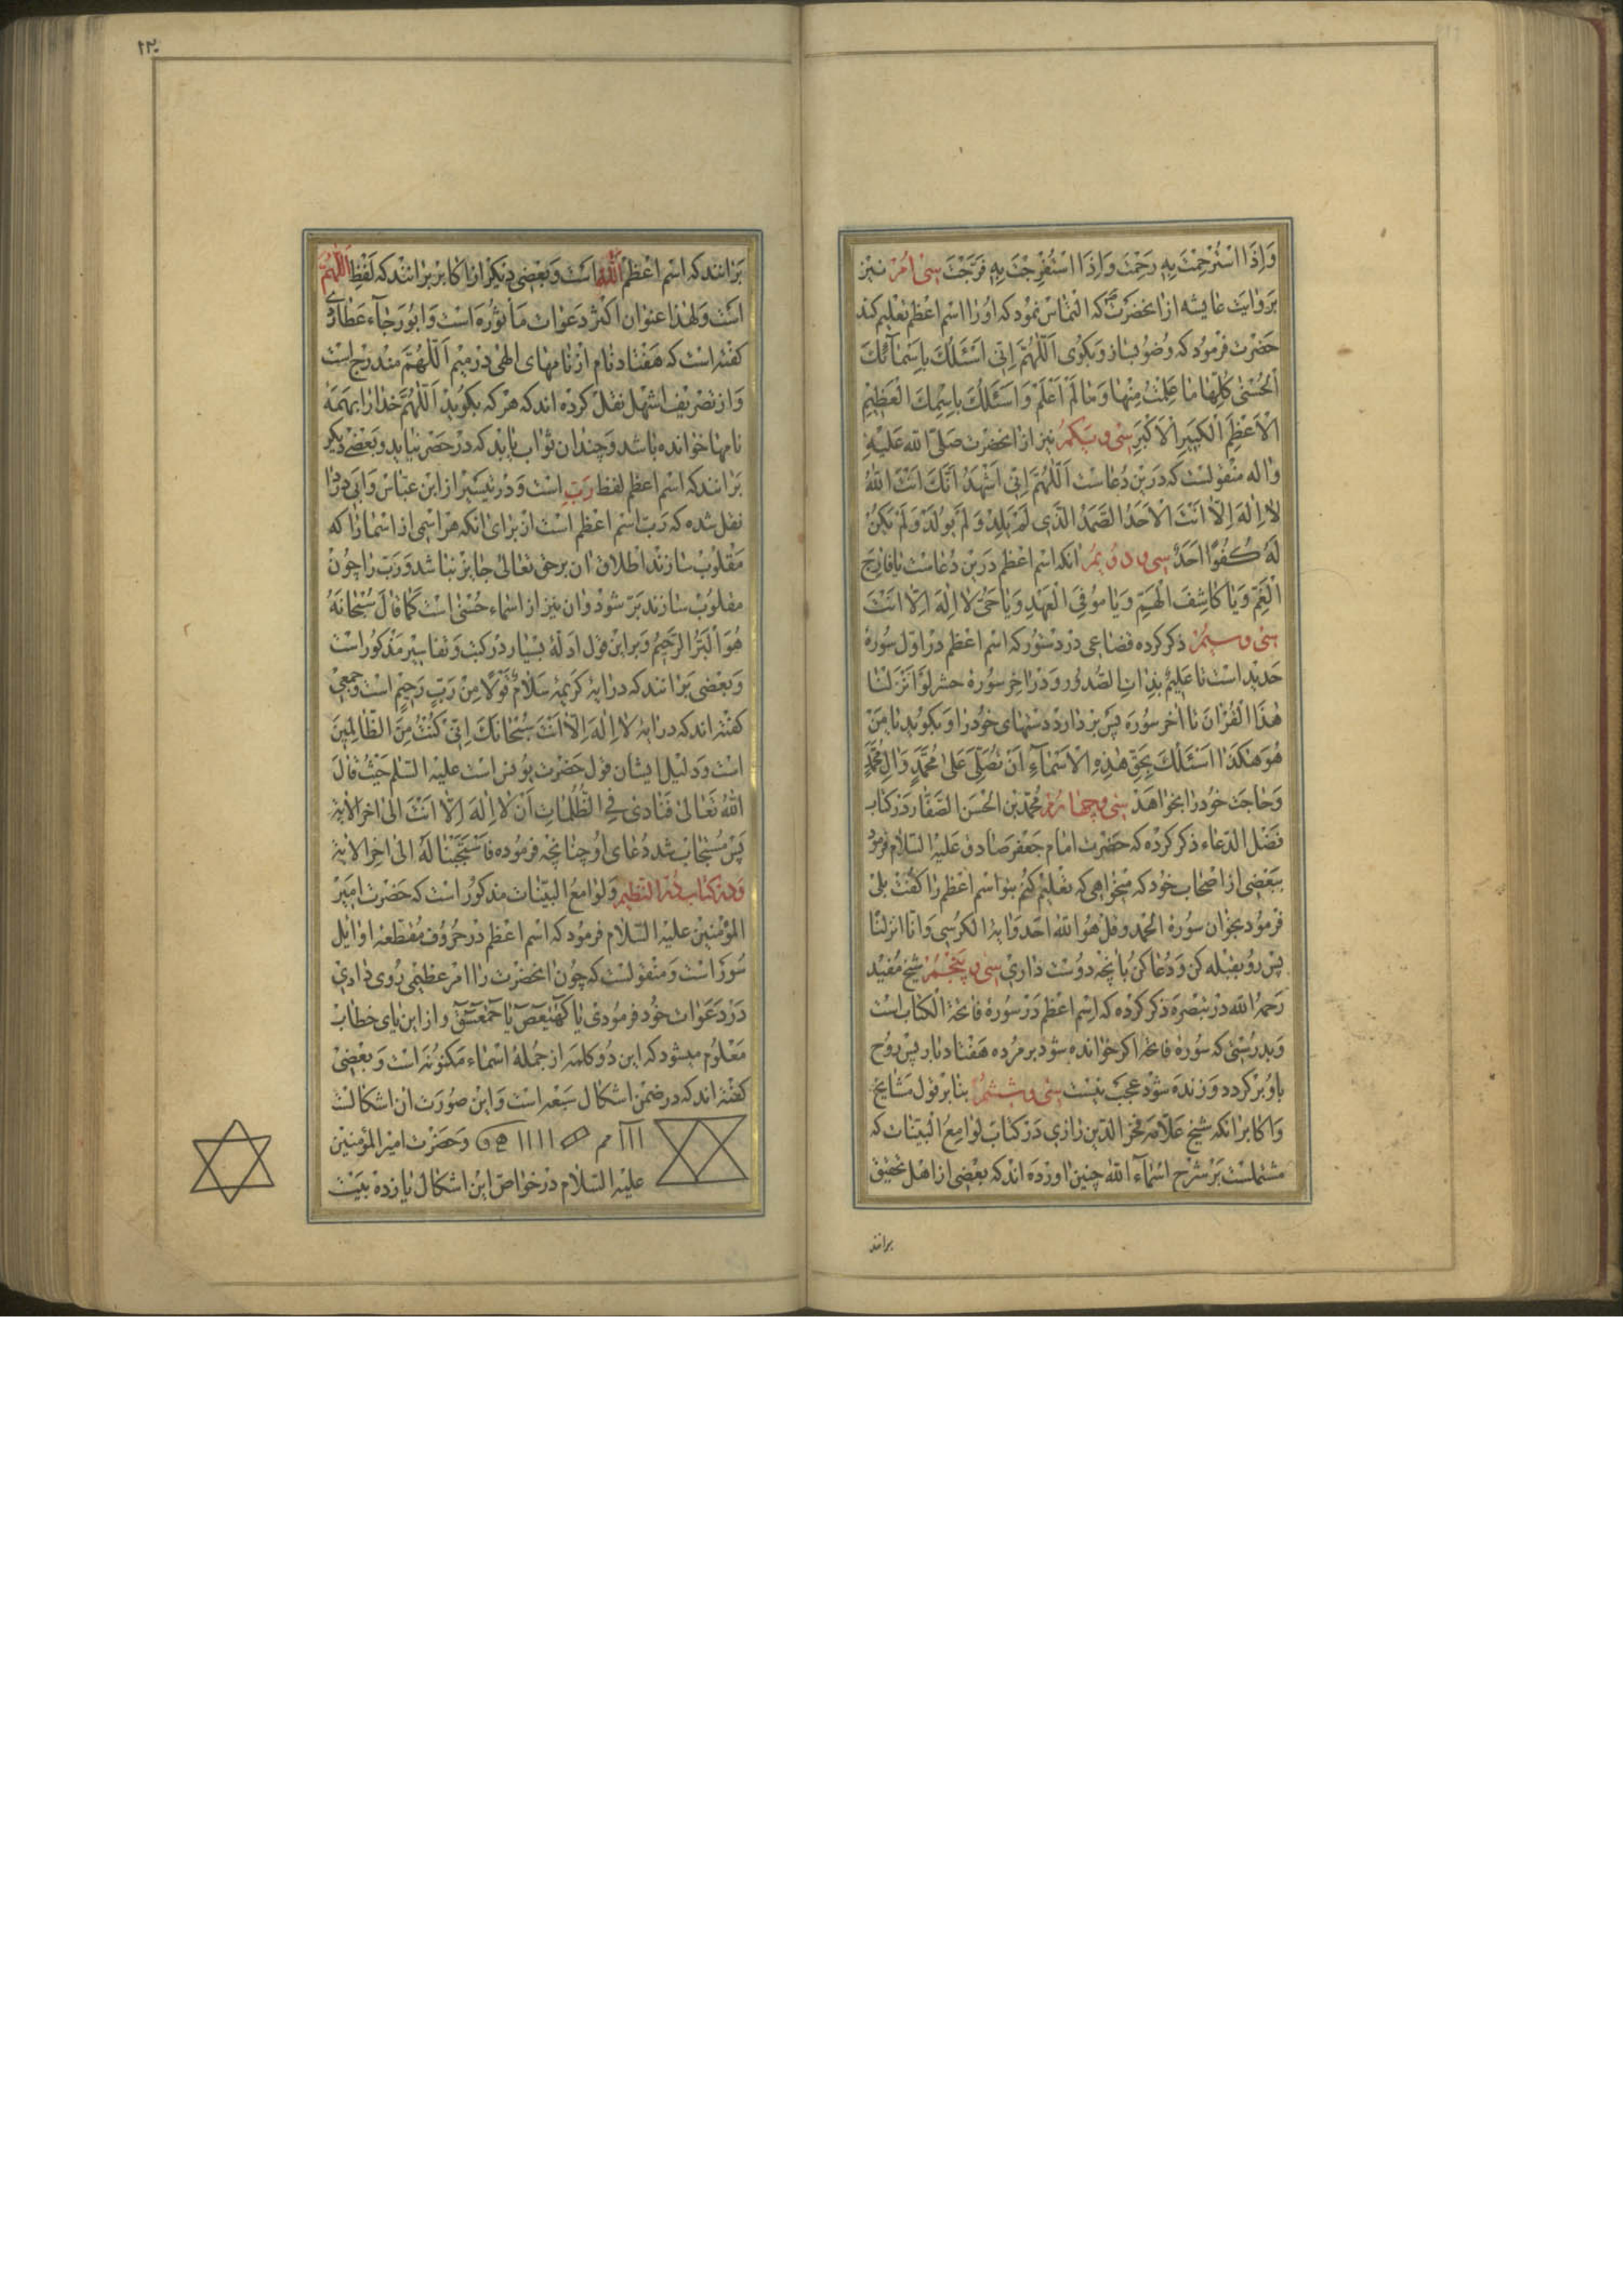 وَاِذَا اسْتُرْحِمْتَ بِهِ رَحِمْتَ وَاِذَا اسْتُفْرِجْتَ بِهِ فَرَّجْتَ سی امر نیز
بروایت عایشه از انحضرت که التماس نمود که او را اسم اعظم تعلیم کند
حضرت فرمود که وضو بساز و بکوی اَللّٰهُمَّ اِنّی اَسْئَلُكَ بِاَسْمائِكَ
الْحُسْنٰی کُلِّها ما عَلِمْتُ مِنْها وَما لَمْ اَعْلَمْ وَاَسْئَلُكَ بِاسْمِكَ الْعَظیمِ
الْاَعْظَمِ الْکَبیرِ الْاَکْبَرِ سی و یکم نیز از انحضرت صلی الله علیه
واله منقولست که درین دعاست اَللّٰهُمَّ اِنّی اَشْهَدُ اَنَّكَ اَنْتَ اللهُ
لا اِلٰهَ اِلّا اَنْتَ الْاَحَدُ الصَّمَدُ الَّذی لَمْ یَلِدْ وَلَمْ یُولَدْ وَلَمْ یَکُنْ
لَهُ کُفُوًا اَحَدٌ سی و دویم انکه اسم اعظم درین دعاست یا فارِجَ
الْغَمِّ وَیا کاشِفَ الْهَمِّ وَیا مُوفِیَ الْعَهْدِ وَیا حَیُّ لا اِلٰهَ اِلّا اَنْتَ
سی و سیم ذکر کرده قضاعی در دستور که اسم اعظم در اول سوره
حدید است تا عَلیمٌ بِذاتِ الصُّدُورِ و در اخر سوره حشر لَوْ اَنْزَلْنا
هٰذَا الْقُرْانَ تا اخر سوره پس بردارد دستهای خود را و بکوید یا مَنْ
هُوَ هٰکَذا اَسْئَلُكَ بِحَقِّ هٰذِهِ الْاَسْماءِ اَنْ تُصَلِّیَ عَلٰی مُحَمَّدٍ وَالِ مُحَمَّدٍ
و حاجت خود را بخواهد سی و چهارم محمد بن الحسن الصفار در کتاب
فضل الدعاء ذکر کرده که حضرت امام جعفر صادق علیه السلام فرمود
ببعضی از اصحاب خود که میخواهی که تعلیم کنم بتو اسم اعظم را کفت بلی
فرمود بخوان سوره الحمد و قل هو الله احد و ایة الکرسی و انا انزلنا
پس رو بقبله کن و دعا کن بانچه دوست داری سی و پنجم شیخ مفید
رحمه الله در تبصره ذکر کرده که اسم اعظم در سوره فاتحة الکتاب است
و بدرستی که سوره فاتحه اکر خوانده شود بر مرده هفتاد بار پس روح
باو برکردد و زنده شود عجب نیست سی و ششم بنا بر قول مشایخ
و اکابر انکه شیخ علامه فخر الدین رازی در کتاب لوامع البینات که
مشتملست بر شرح اسماء الله چنین اورده اند که بعضی از اهل تحقیق
برانند
۱۲۰
برانند که اسم اعظم الله است و بعضی دیکر از اکابر برانند که لفظ اللهم
است و لهذا عنوان اکثر دعوات ماثوره است و ابو رجاء عطاردی
کفته است که هفتاد نام از نامهای الهی در میم اللهم مندرج است
و از نضر بن شمیل نقل کرده اند که هرکه بکوید اللهم خدا را بهمه
نامها خوانده باشد و چندان ثواب یابد که در حصر نیاید و بعضی دیکر
برانند که اسم اعظم لفظ رب است و در تیسیر از ابن عباس و ابی دردا
نقل شده که رب اسم اعظم است از برای انکه هر اسمی از اسما را که
مقلوب سازند اطلاق ان بر حق تعالی جایز نباشد و رب را چون
مقلوب سازند بر شود وان نیز از اسماء حسنی است کما قال سبحانه
هو البر الرحیم و بر این قول ادله بسیار در کتب و تفاسیر مذکور است
و بعضی برانند که در ایه کریمه سَلامٌ قَوْلًا مِنْ رَبٍّ رَحیمٍ است و جمعی
کفته اند که در ایه لا اِلٰهَ اِلّا اَنْتَ سُبْحانَكَ اِنّی کُنْتُ مِنَ الظّالِمینَ
است و دلیل ایشان قول حضرت یونس است علیه السلم حیث قال
الله تعالی فَنادٰی فِی الظُّلُماتِ اَنْ لا اِلٰهَ اِلّا اَنْتَ الی اخر الایة
پس مستجاب شد دعای او چنانچه فرموده فَاسْتَجَبْنا لَهُ الی اخر الایة
و در کتاب در النظیم و لوامع البینات مذکور است که حضرت امیر
المؤمنین علیه السلام فرمود که اسم اعظم در حروف مقطعه اوایل
سور است و منقولست که چون انحضرت را امر عظیمی روی دادی
در دعوات خود فرمودی یا کهیعص یا حمعسق و از این یای خطاب
معلوم میشود که این دو کلمه از جمله اسماء مکنونه است و بعضی
کفته اند که در ضمن اشکال سبعه است و این صورت ان اشکالست
و حضرت امیر المؤمنین
علیه السلام در خواص این اشکال یازده بیت